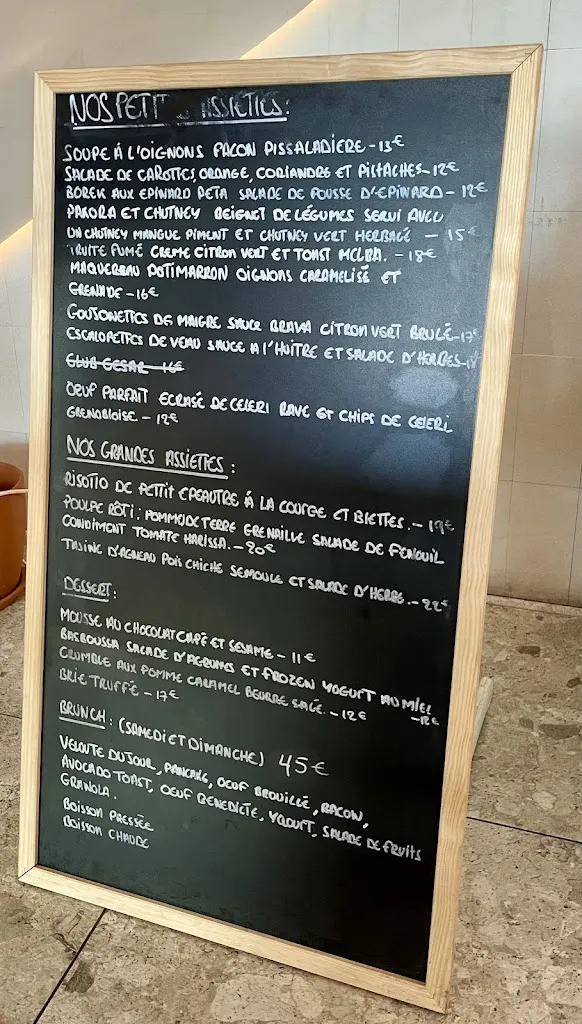 NOS PETIT ASSIETTES:
SOUPE À L'OIGNONS FACON PISSALADIERE - 13€
SALADE DE CAROTTES, ORANGE, CORIANDRE ET PISTACHES - 12€
BOREK AUX EPINARD FETA SALADE DE POUSSE D'EPINARD - 12€
PAKORA ET CHUTNEY BEIGNET DE LÉGUMES SERVI AVEC
UN CHUTNEY MANGUE PIMENT ET CHUTNEY VERT HERBAGÉ - 15€
TRUITE FUMÉ CREME CITRON VERT ET TOAST MELBA. - 18€
MAQUEREAU POTIMARRON OIGNONS CARAMELISÉ ET
GRENADE - 16€
GOUJONETTES DE MAIGRE SAUCE BRAVA CITRON VERT BRULÉ - 17€
ESCALOPETTES DE VEAU SAUCE A L'HUÎTRE ET SALADE D'HERBES -
CLUB CESAR - 16€
OEUF PARFAIT ECRASÉ DE CELERI RAVE ET CHIPS DE CELERI
GRENOBLOISE - 12€
NOS GRANDES ASSIETTES :
RISOTTO DE PETTIT EPEAUTRE À LA COURGE ET BLETTES. - 19€
POULPE RÔTI : POMME DE TERRE GRENAILLE SALADE DE FENOUIL
CONDIMENT TOMATE HARISSA. - 20€
TAJINE D'AGNEAU POIS CHICHE SEMOULE ET SALADE D'HERBE. - 22€
DESSERT :
MOUSSE AU CHOCOLAT CAFÉ ET SESAME - 11€
BASBOUSSA SALADE D'AGRUMES ET FROZEN YOGURT AU MIEL
- 12€
CRUMBLE AUX POMME CARAMEL BEURRE SALÉ. - 12€
BRIE TRUFFÉ - 17€
BRUNCH : (SAMEDI ET DIMANCHE) 45€
VELOUTE DU JOUR, PANCAKE, OEUF BROUILLÉ, BACON,
AVOCADO TOAST, OEUF BENEDICTE, YOGURT, SALADE DE FRUITS
GRANOLA.
BOISSON PRESSÉE
BOISSON CHAUDE